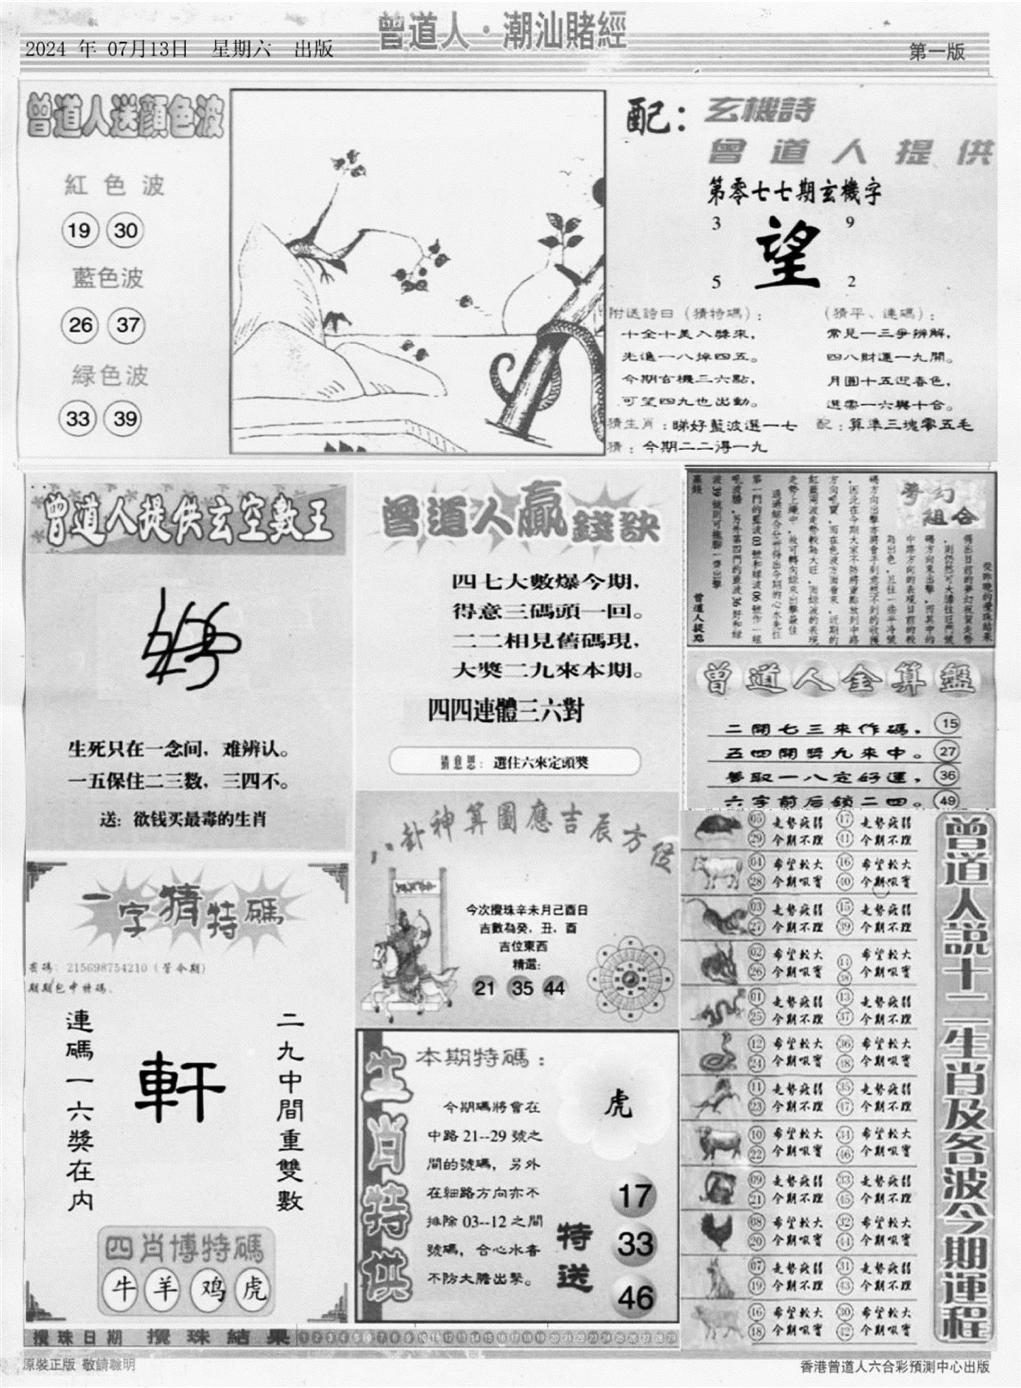 2024 年 07月13日 星期六 出版
曾道人·潮汕賭經
第一版
曾道人送顏色波
紅色波
19 30
藍色波
26 37
綠色波
33 39
配：
玄機詩
曾道人提供
第零七七期玄機字
3 9
望
5 2
附送詩曰（猜特碼）：
十全十美入獎來，
先進一八掉四五。
今期古機三六點，
可望四九也出動。
猜生肖：睇好藍波選一七
猜：今期二二得一九
（猜平、連碼）：
常見一三爭辨解，
四八財運一九開。
月圓十五迎春色，
選零一六與十合。
配：算準三塊零五毛
曾道人提供玄空數王
生死只在一念间，难辨认。
一五保住二三数，三四不。
送：欲钱买最毒的生肖
曾道人贏錢訣
四七大數爆今期，
得意三碼頭一回。
二二相見舊碼現，
大獎二九來本期。
四四連體三六對
猜意思：選住六來定頭獎
夢幻
組合
曾道人提路
曾道人金算盤
二開七三來作碼， 15
五四開獎九來中。 27
善取一八定好運， 36
六字前后鎖二四。 49
一字猜特碼
密碼：215698754210（管今期）
期期包中特碼.
連碼一六獎在内
軒
二九中間重雙數
四肖博特碼
牛 羊 鸡 虎
八卦神算圖應吉辰方位
今次攪珠辛未月己酉日
吉數為癸，丑，酉
吉位東西
精選：
21 35 44
生肖特供
本期特碼：
今期碼將會在
中路 21--29 號之
間的號碼，另外
在細路方向亦不
排除 03--12 之間
號碼，合心水者
不防大膽出擊。
虎
特送
17
33
46
曾道人説十二生肖及各波今期運程
05 走勢疲弱 17 走勢疲弱
29 今期不理 41 今期不理
04 希望較大 16 希望較大
28 今期吸實 40 今期吸實
03 走勢疲弱 15 走勢疲弱
27 今期不理 39 今期不理
02 希望較大 14 希望較大
26 今期吸實 38 今期吸實
01 走勢疲弱 13 走勢疲弱
25 今期不理 37 今期不理
12 希望較大 36 希望較大
24 今期吸實 48 今期吸實
11 走勢疲弱 35 走勢疲弱
23 今期不理 47 今期不理
10 希望較大 34 希望較大
22 今期吸實 46 今期吸實
09 走勢疲弱 33 走勢疲弱
21 今期不理 45 今期不理
08 希望較大 32 希望較大
20 今期吸實 44 今期吸實
07 走勢疲弱 31 走勢疲弱
19 今期不理 43 今期不理
16 希望較大 30 希望較大
18 今期吸實 42 今期吸實
攪珠日期 攪珠結果
原裝正版 敬請聰明
香港曾道人六合彩預測中心出版